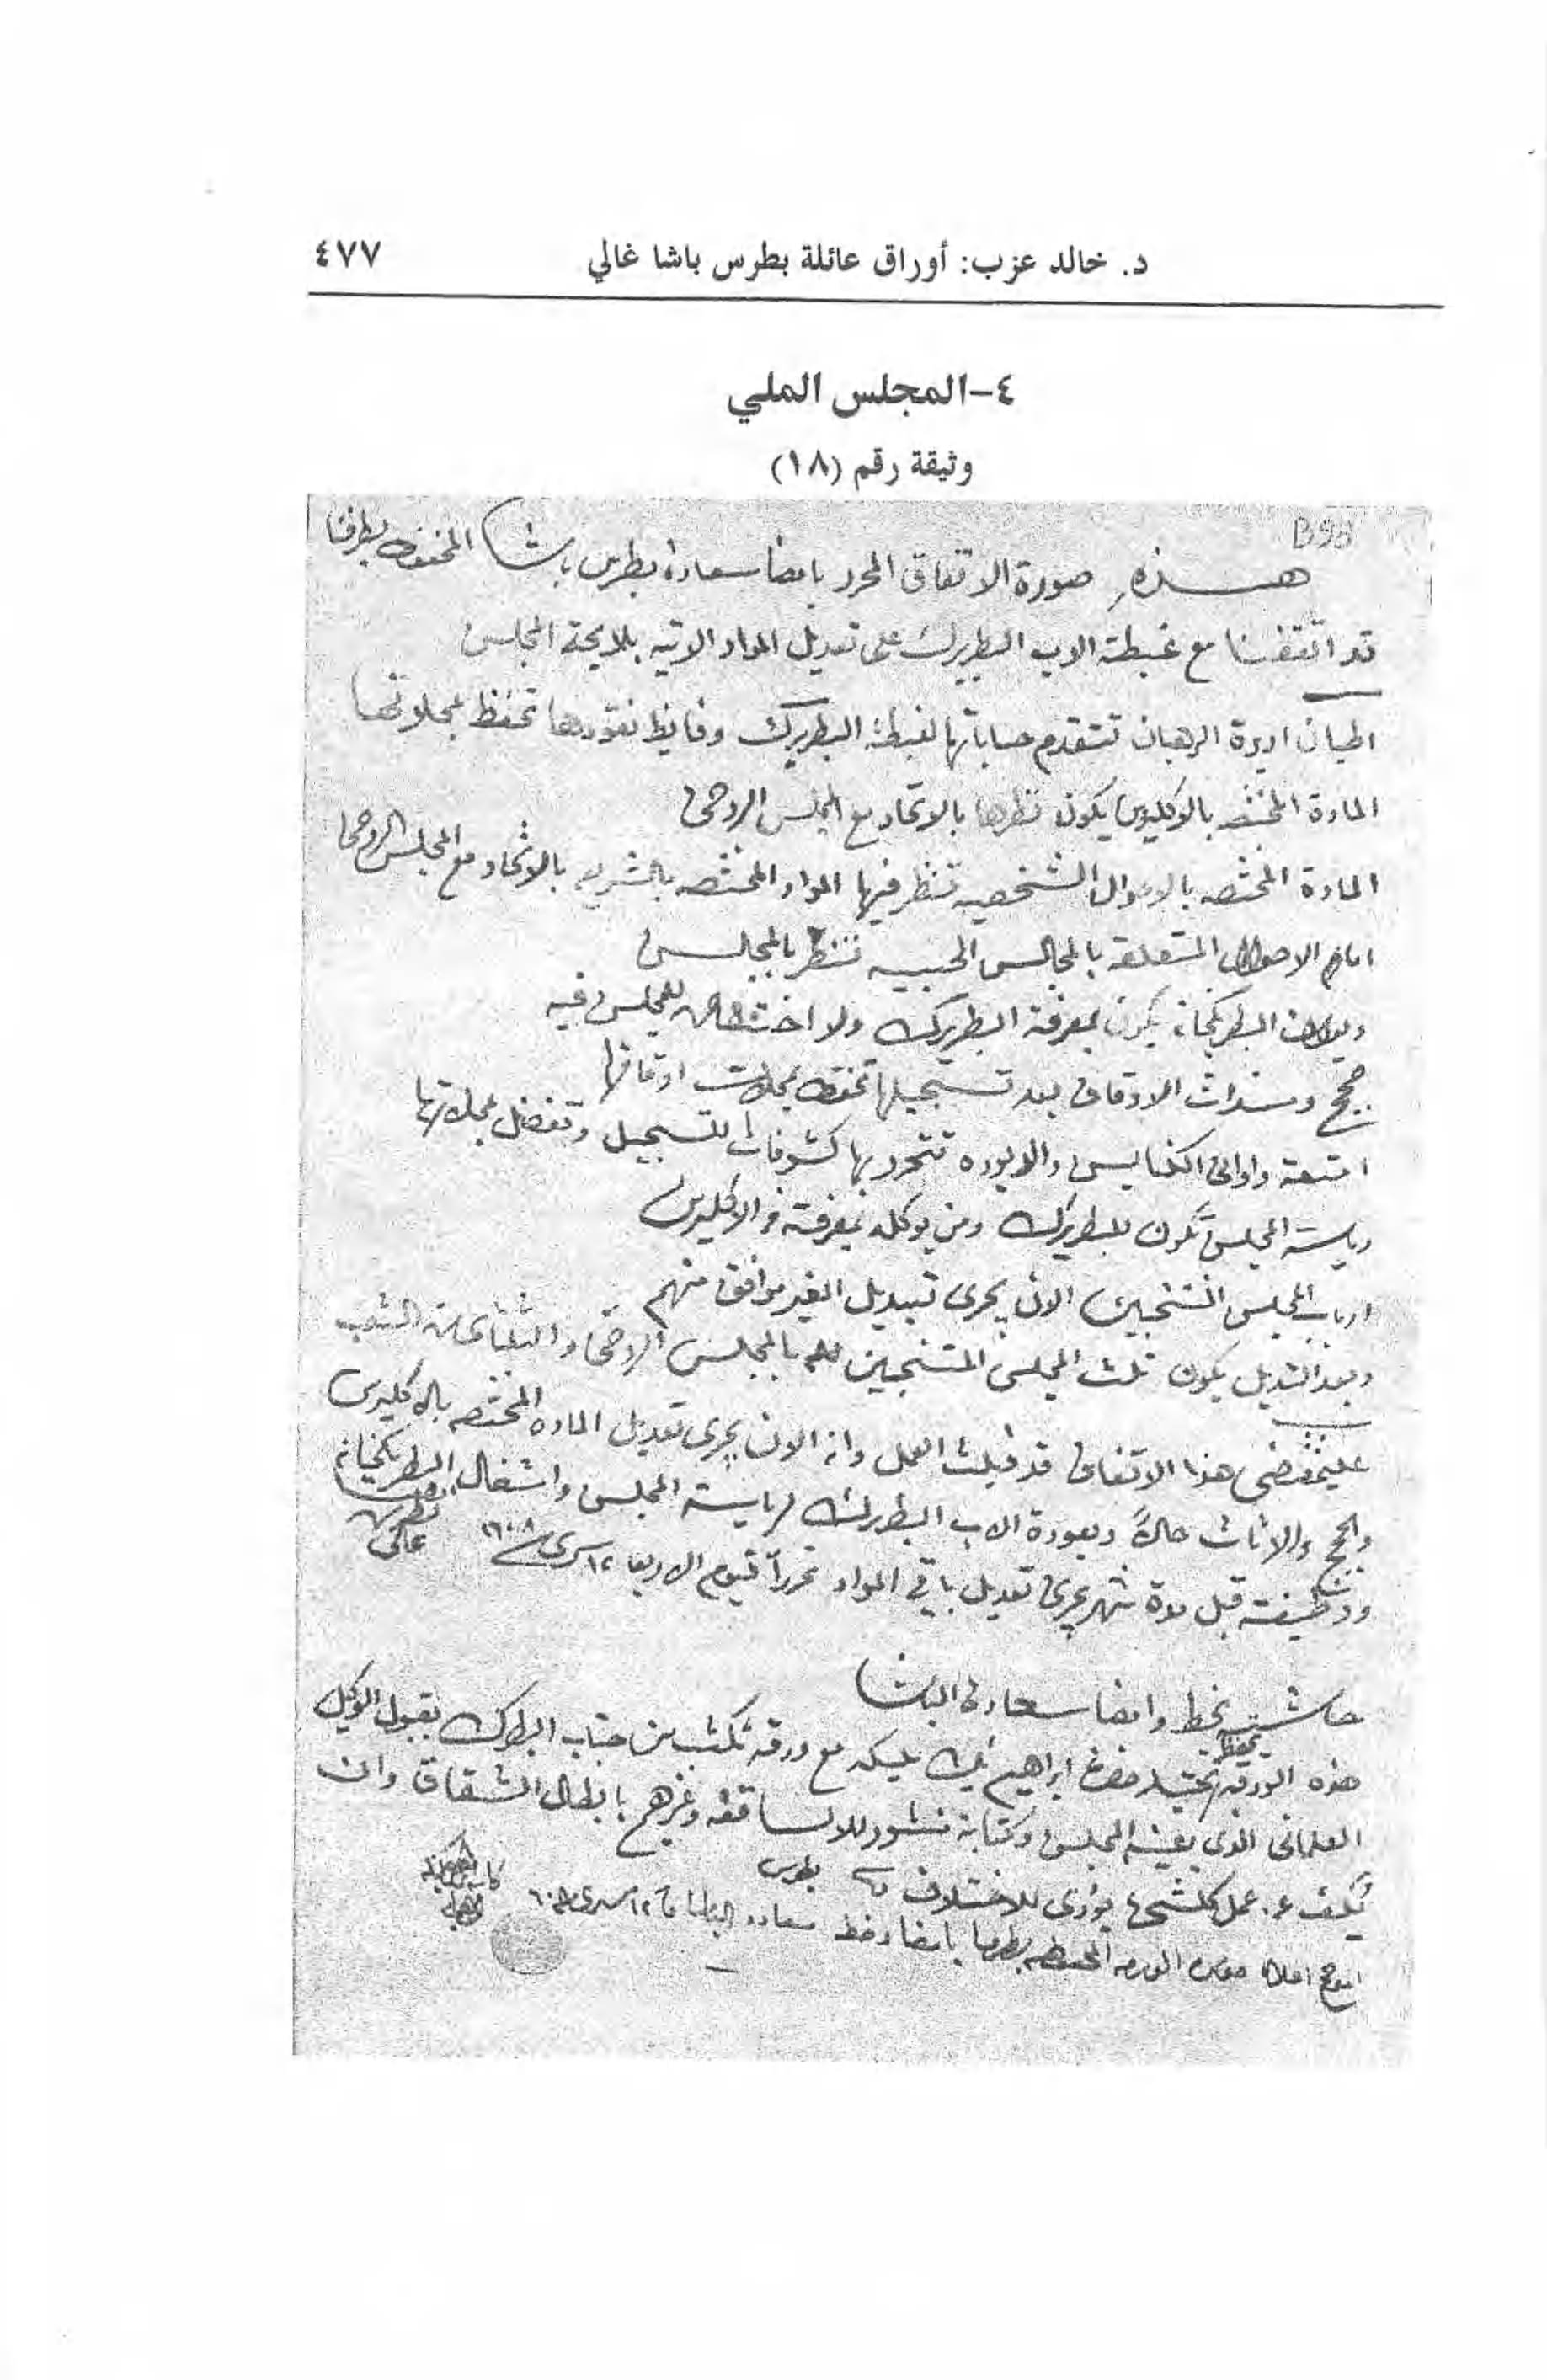 د. خالد عزب: أوراق عائلة بطرس باشا غالي ٤٧٧
٤-المجلس الملي
وثيقة رقم (١٨)
B9b
هذه صورة الاتفاق المحرر بامضا سعادة بطرس باشا المحفوظ بطرفنا
قد اتفقنا مع غبطة الاب البطريرك على تعديل المواد الاتيه بلايحة المجلس
اطيان اديرة الرهبان تتقدم حساباتها لغبطة البطريرك وفايظ نقودها تحفظ بمحلاتها
المادة المختصه بالاكليروس يكون نظرها بالاتحاد مع المجلس الروحى
المادة المختصه بالاحوال الشخصيه تنظر فيها المواد المختصه بالشريعه بالاتحاد مع المجلس الروحى
اما الاحوال المتعلقه بالمجالس الحسبيه تنظر بالمجلس
ديوان البطركخانه يكون بمعرفة البطريرك ولا اختصاص للمجلس فيه
حجج ومستندات الاوقاف بعد تسجيلها تحفظ بمحلات اوقافها
امتعة واوانى الكنايس والاديوره تتحرر بها كشوفات للتسجيل وتفضل بمحلاتها
رياسة المجلس تكون للبطريرك ومن يوكله بمعرفته من الاكليروس
ارباب المجلس المنتخبين الان يجرى تبديل الغير موافق منهم
وبعد التبديل يكون ثلث المجلس المنتخبين بالمجلس الروحى والثلثان من الشعب
بمقتضى هذا الاتفاق قد قبلت العمل وانه الان يجرى تعديل الماده المختصه بالاكليروس
والحجج والاثاث حالاً وبعودة الاب البطريرك لرياسة المجلس واشغال البطركخانه
ووظيفته قبل مدة شهر يجرى تعديل باقى المواد تحريراً فيوم الاربعا ١٢ مسرى سنة ١٦٠٨
بطرس
غالى
حاشية بخط وامضا سعادة الباشا
هذه الورقة تحفظ بيد حضرة ابراهيم بك مع ورقه تكتب من جناب البطرك بقبول الوكيل
العلمانى الذى يعينه المجلس وكتابة منشور للاساقفه وغيرهم بابطال الشقاق وان
يكف عن عمل كلشى يؤدى للاختلاف بطرس
اعلاه صورة الورقه المحفوظه بطرفنا بامضا وخط سعادة الباشا ١٢ مسرى